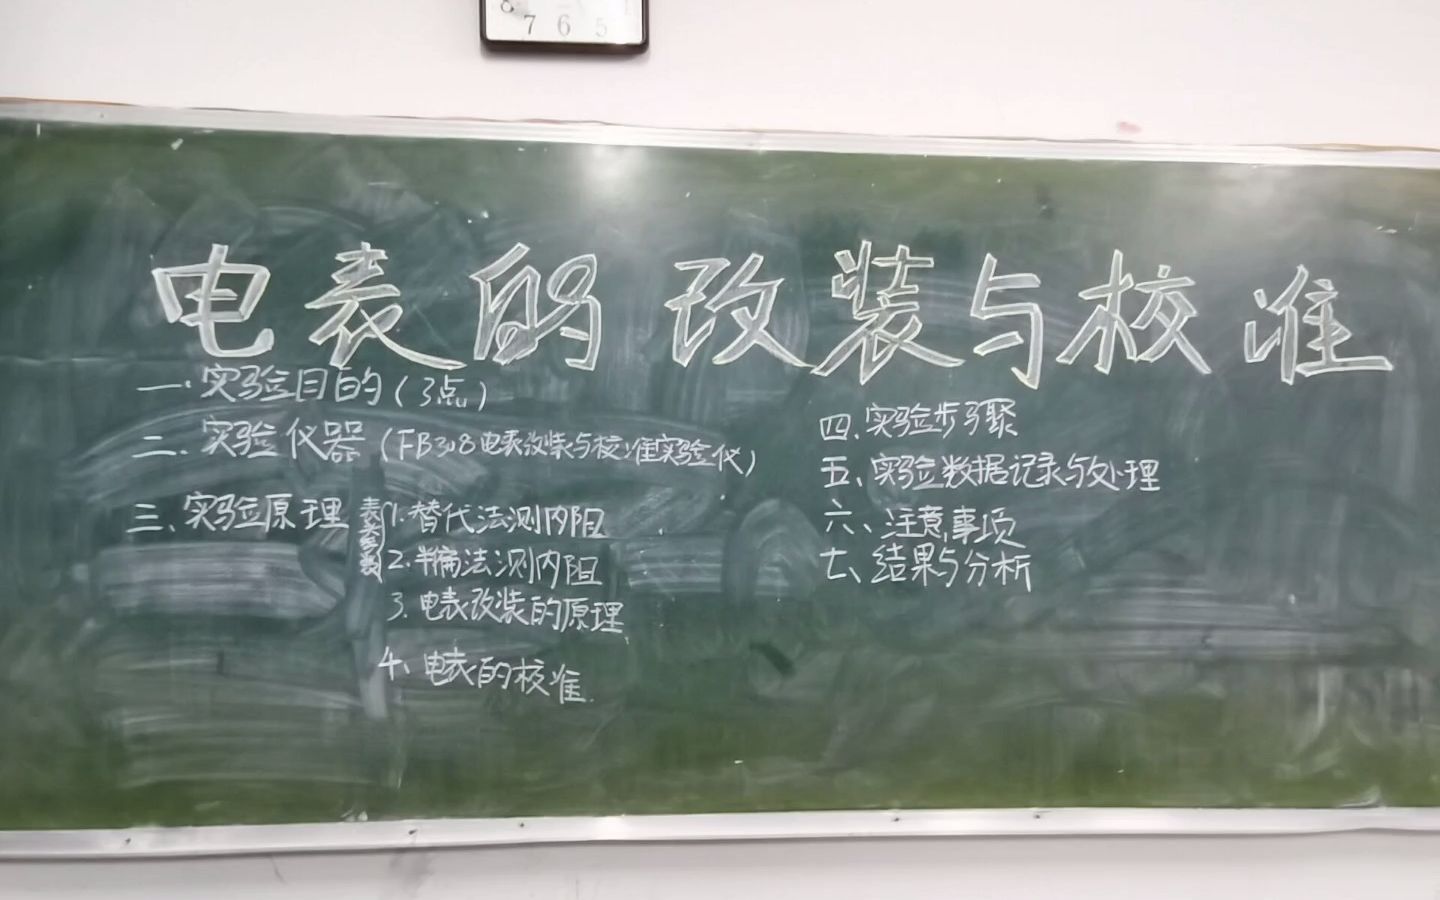 8 7 6 5
电表的改装与校准
一.实验目的(3点)
二.实验仪器(FB308电表改装与校准实验仪)
三、实验原理
表头参数
1.替代法测内阻
2.半偏法测内阻
3.电表改装的原理
4、电表的校准.
四.实验步骤
五、实验数据记录与处理
六、注意事项
七、结果与分析